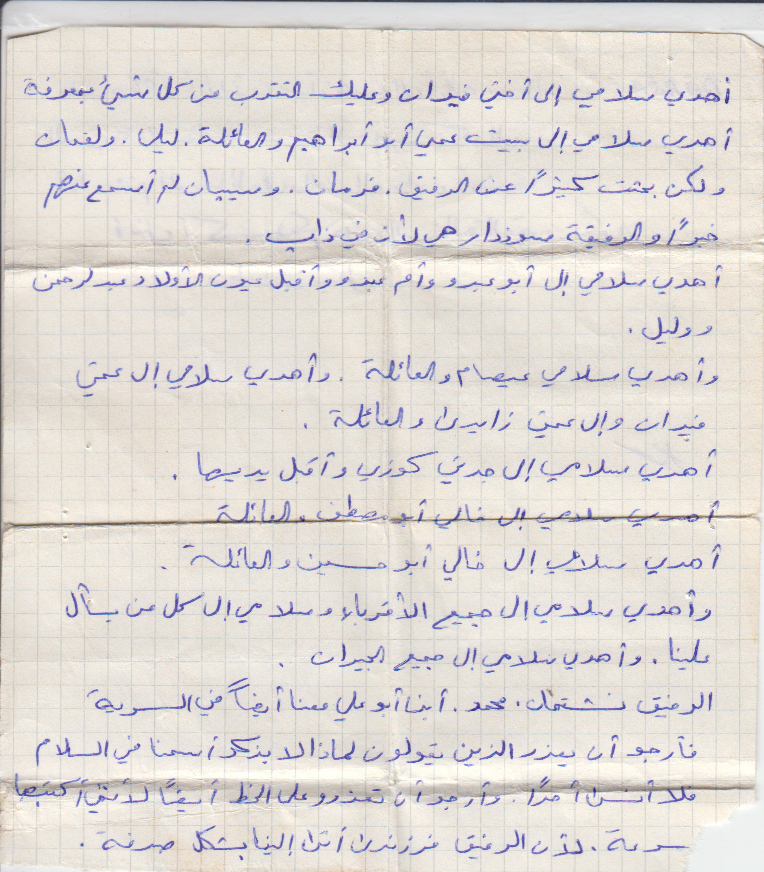 أهدي سلامي إلى أختي فيدان وعليك التقرب من كل شيئ بمعرفة
أهدي سلامي إلى بيت عمي أبو أبراهيم والعائلة. ليلى. ولقمان
ولكن بحثت كثيراً عن الرفيق. فرمان. وسيبان لم أسمع عنهم
خبراً والرفيقة سوزدار هي لأن في زاب.
أهدي سلامي إلى أبو عبدو وأم عبدو وأقبل عيون الأولاد عبدلرحمن
ووليل.
وأهدي سلامي عيصام والعائلة. وأهدي سلامي إلى عمتي
فيدان وإلى عمتي زايدة والعائلة.
أهدي سلامي إلى جدتي كوزي وأقبل يديها.
أهدي سلامي إلى خالي أبو مصطفى والعائلة
أهدي سلامي إلى خالي أبو حسين والعائلة.
وأهدي سلامي إلى جميع الأقرباء وسلامي إلى كل من يسأل
علينا. وأهدي سلامي إلى جميع الجيران.
الرفيق نشتمان. محمد. أبن أبو علي معنا أيضاً في السرية
فأرجو أن يعذر الذين يقولون لماذا لا يذكر أسمنا في السلام
فلا أنسى أحداً. وأرجو أن تعذرو على الخط أيضاً لأنني أكتبها
سرعة. لأن الرفيق فرزندا أتى إلينا بشكل صدفة.